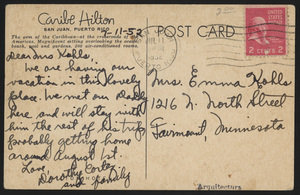 Caribe Hilton
SAN JUAN, PUERTO RICO
The gem of the Caribbean—at the crossroads of the
Americas. Magnificent setting overlooking the ocean,
beach, pool and gardens. 300 air-conditioned rooms.
9-11-52
POST CARD
2 CENTS 2
Dear Mrs Kohls,
We are having our
vacation in this lovely
place. We met our Daddy
here and will stay with
him the rest of his trip,
probably getting home
around August 1st.
Love,
Dorothy Porter
and family
Mrs. Emma Kohls
1216 N. North Street
Fairmont, Minnesota
Arquitectura